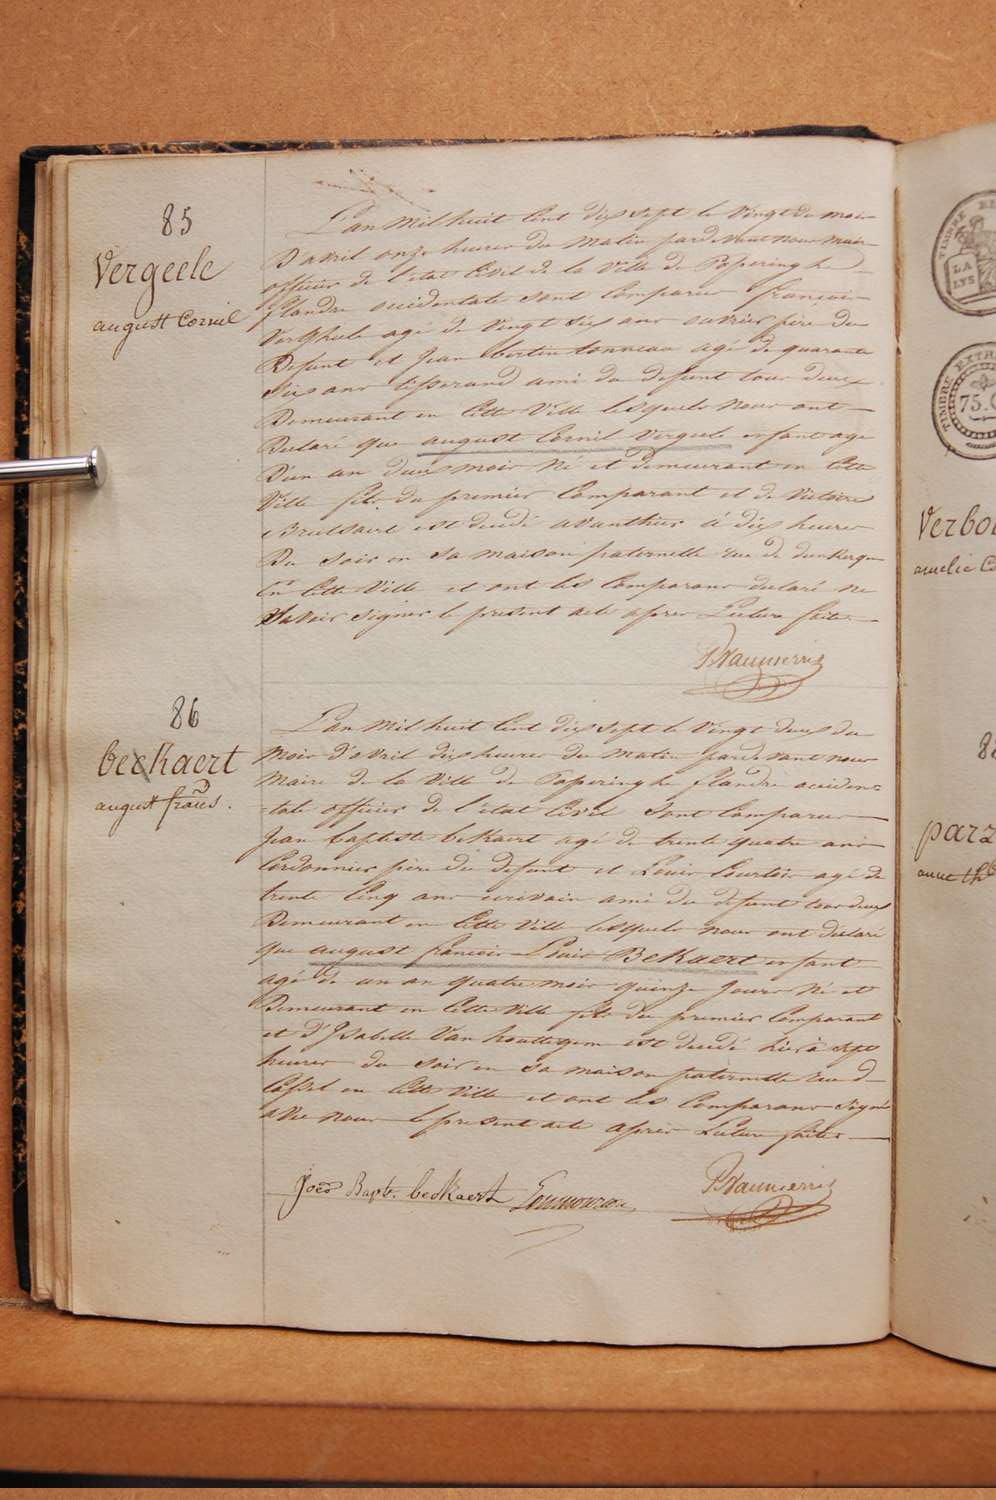 85
Vergeele
august Cornil
L'an Mil huit Cent dix sept le Vingt du mois
D'avril onze heures du Matin pardevant nous Maire
officier de l'état Civil de la Ville de Poperinghe
flandre occidentale sont Comparus françois
Verghele agé de Vingt six ans ouvrier père du
Defunt et Jean bertin tonneau agé de quarante
Six ans tisserand ami du defunt tous deux
Demeurant en Cette Ville lesquels Nous ont
Declaré que august Cornil Vergeele enfant agé
D'un an deux mois Né et demeurant en Cette
Ville fils du premier Comparant et de Victoire
Brutsaert est decedé avanthier à dix heures
Du Soir en Sa maison paternelle rue de dunkerque
En Cette Ville et ont les Comparans declaré ne
Savoir Signer le present acte apres Lecture faite
86
beckaert
august francs.
L'an Mil huit Cent dix sept le Vingt deux du
Mois d'avril dix heures du Matin pardevant nous
Maire de la Ville de Poperinghe flandre occiden=
=tale officier de l'état Civil Sont Comparus
Jean baptiste beKaert agé de trente quatre ans
Cordonnier père du defunt et Louis agé de
trente Cinq ans ecrivain ami du defunt tous deux
Demeurant en Cette Ville lesquels nous ont déclaré
que august francois Louis BeKaert enfant
agé de un an quatre mois quinze Jours Né et
Demeurant en Cette Ville fils du premier Comparant
et d'Isabelle Van houttegem est decedé hier à Sept
heures du Soir en Sa maison paternelle rue d
Cassel en Cette Ville et ont les Comparans Signé
avec nous le present acte apres Lecture faite
Joes Bapt. beckaert
TIMBRE
LA
LYS
TIMBRE EXTR
75.C
Verbo
amelie Co
8
parz
anne th